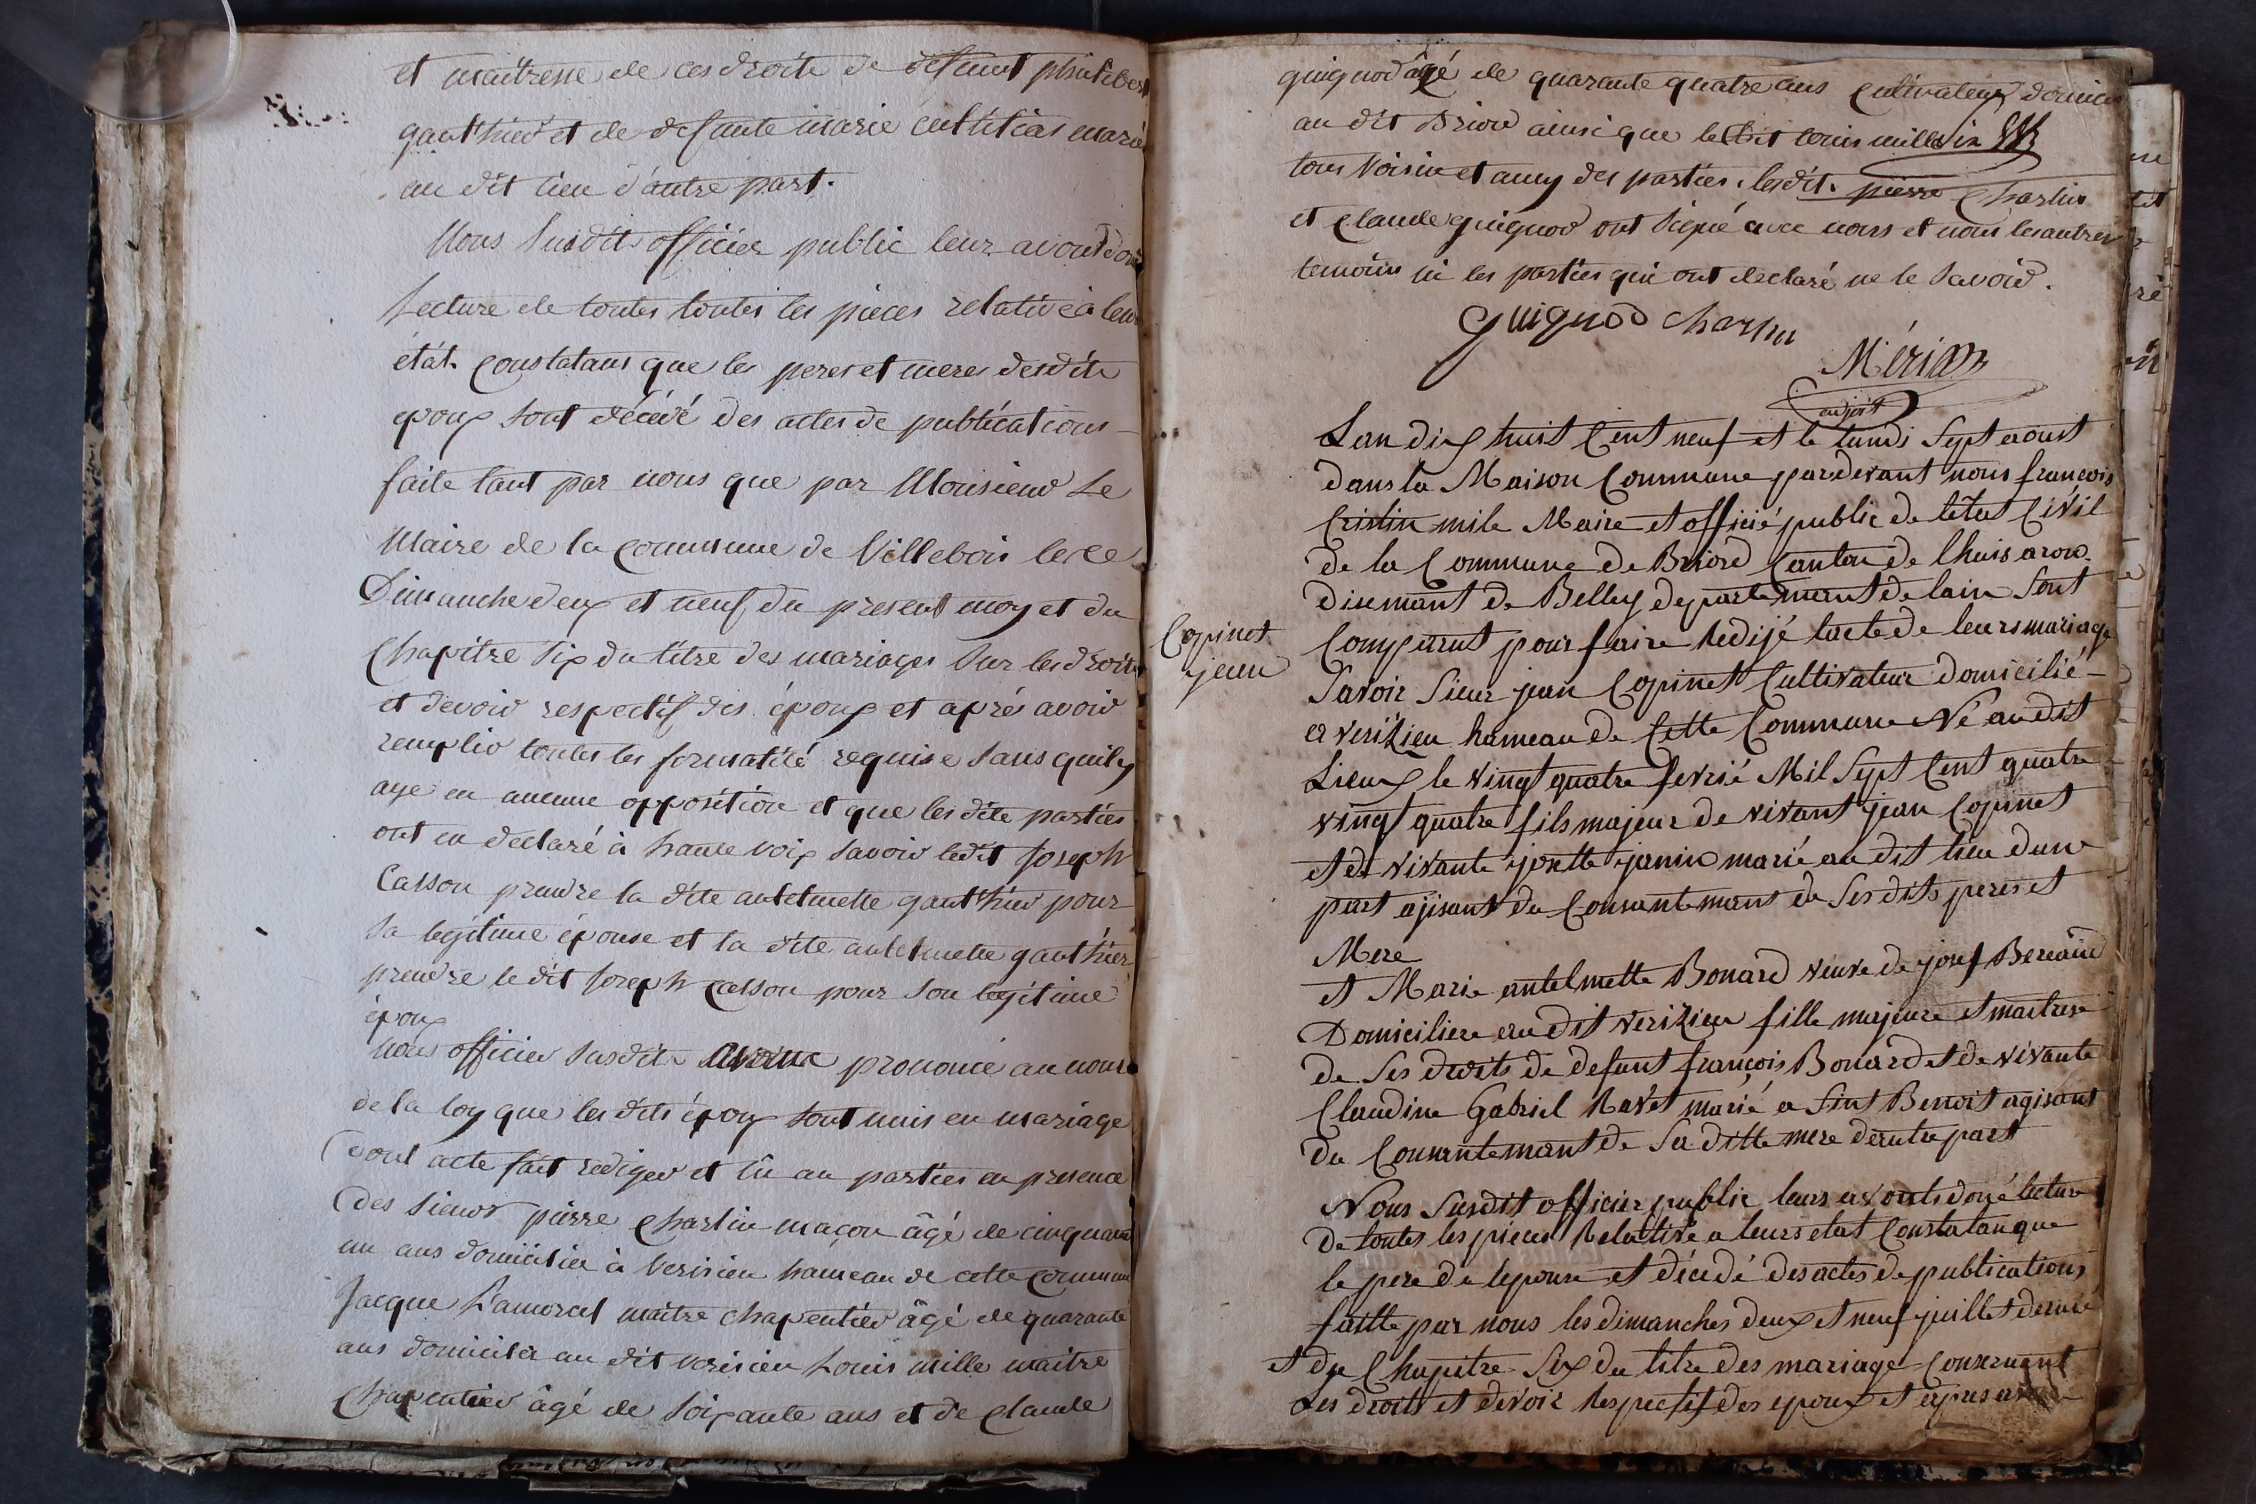 et maitresse de ces droits de defunt philibert
gauthier et de defunte marie marié
au dit lieu d'autre part.
Nous susdit officier public leur avont doné
lecture de toutes toutes les pieces relative à leur
état. Constatans que les peres et meres desdits
epoux sont décédé des actes de publications
faite tant par nous que par Monsieur Le
Maire de la Commune de Villebois les
Dimanche deux et neuf du present moy et du
Chapitre six du titre des mariages sur les droits
et devoir respectif des époux et aprés avoir
remplir toutes les formalité requise sans quil y
aye eu aucune opposition et que les dite parties
ont eu declaré à haute voix savoir ledit Joseph
Casson prendre la dite antelmette gauthier pour
sa legitime épouse et la dite antelmette gauthier
prendre le dit Joseph Casson pour son legitime
époux
Nous officier susdit avonc prononcé au nom
de la loy que les dits époux sont unis en mariage
dont acte fait rediger et lû au parties en presence
des sieurs pierre Charlin maçon âgé de cinquante
un ans domicilié à Verisieu hameau de cette Commune
Jacque maitre Chapentier âgé de quarante
ans domicilié au dit verisieu Louis mille maitre
Chapentier âgé de soixante ans et de Claude
quignod âgé de quarante quatre ans Cultivateur domici
au dit Briord ainsi que ledit louis mille
tous voisin et amy des parties. lesdit. pierre Charlin
et Claude quignod ont signé avec nous et nom les autres
temoins ni les parties qui ont declaré ne le savoir.
Guignod Charlin
Mérian
adjoit
Lan dix huit Cent neuf et le lundi sept aoust
dans la Maison Commune pardevant nous françois
Cristin mile Maire et officié public de letat Civil
de la Commune de Briord Canton de lhuis aron
disemant de Belley departemant de lain Sont
Comparut pour faire Redijé lacte de leurs mariage
Copinet
jean
Savoir Sieur jean Copinet Cultivateur domicilié
a verizieu hameau de Cette Commune Né audit
Lieux le vingt quatre fevrié Mil Sept Cent quatre
vingt quatre fils majeur de vivant jean Copinet
et de vivante janin marié au dit lieu dune
part ajisant du Consantemant de Ses dits peres et
Mere
et Marie antelmette Bonard veuve de josef
Domiciliere au dit verizieu fille majeure et maitrese
de Ses droits de defunt françois Bonard et de vivante
Claudine Gabriel Ravet marié a Sint Benoit agisant
du Consantemant de Sa ditte mere dautre part
Nous Susdit officier public leurs avonts doné lecture
De toutes les pieces Relative a leurs etat Constatan que
le pere de lepouse et décedé des actes de publications
faitte par nous les dimanches deux et neuf juillet dernié
et du Chapitre Six du titre des mariage Consernent
Les droits et devoir Respectif des epoux et apres